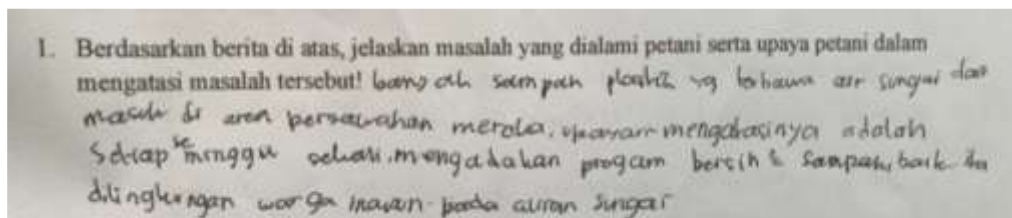 1. Berdasarkan berita di atas, jelaskan masalah yang dialami petani serta upaya petani dalam
mengatasi masalah tersebut! banyak sampah plastik yg terbawa air sungai dan
masuk di area persawahan mereka. upayam mengatasinya adalah
Setiap seminggu sekali mengadakan progam bersih2 sampah, baik itu
dilingkungan warga maupun pada aliran sungai